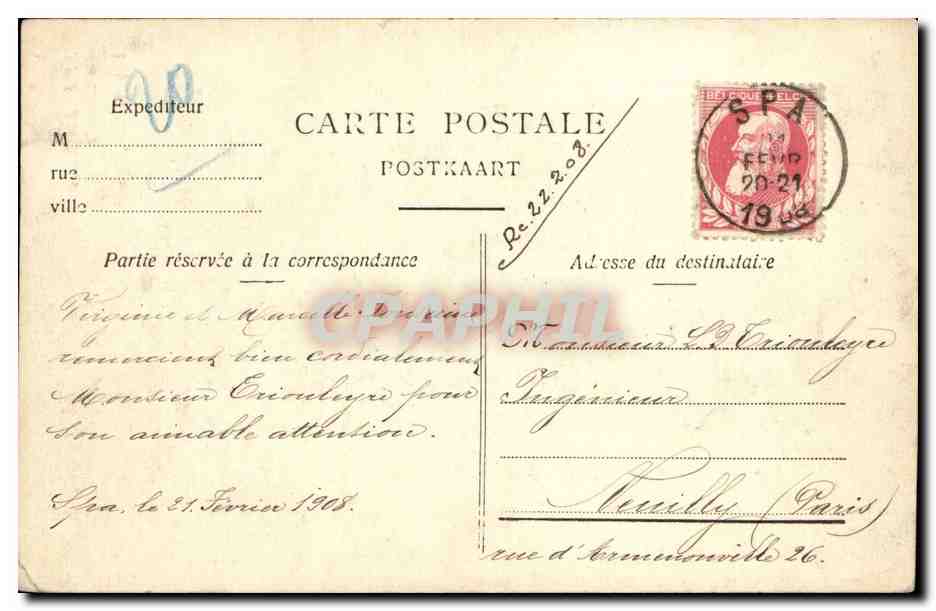 20
Expediteur
M
rue
ville
CARTE POSTALE
POSTKAART
Re. 22.2.08.
BELGIQUE BELG
SPA
21
FEVR
20-21
1908
Partie réservée à la correspondance
Adresse du destinataire
CPAPHIL
Virginie et Marcelle
remercient bien cordialement
Monsieur Triouleyre pour
son aimable attention.
Spa, le 21 Février 1908.
Monsieur L D Triouleyre
Ingénieur
Neuilly (Paris)
rue d'Armenonville 26.